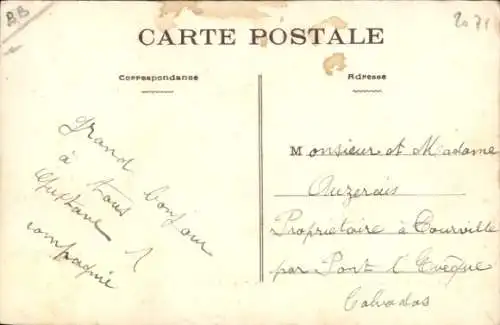 BB
2071
CARTE POSTALE
Correspondance
Adresse
Grand bonjour
à tous
Gustave
compagnie
Monsieur et Madame
Auzerais
Propriétaire à Tourville
par Pont l'Evêque
Calvados